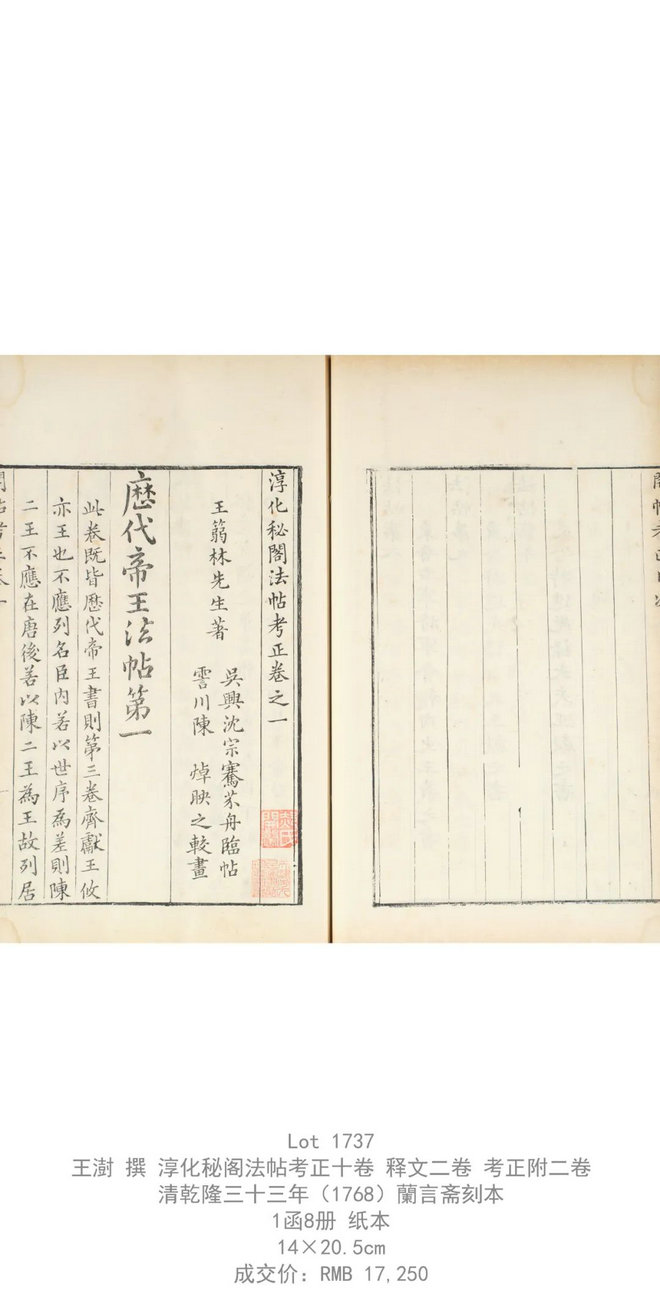 淳化秘閣法帖考正卷之一
王篛林先生著
吳興沈宗騫芥舟臨帖
霅川陳 焯映之較畫
歷代帝王法帖第一
此卷既皆歷代帝王書則第三卷齊獻王攸
亦王也不應列名臣內若以世序為差則陳
二王不應在唐後若以陳二王為王故列居
Lot 1737
王澍 撰 淳化秘阁法帖考正十卷 释文二卷 考正附二卷
清乾隆三十三年（1768）蘭言斋刻本
1函8册 纸本
14×20.5cm
成交价：RMB 17,250